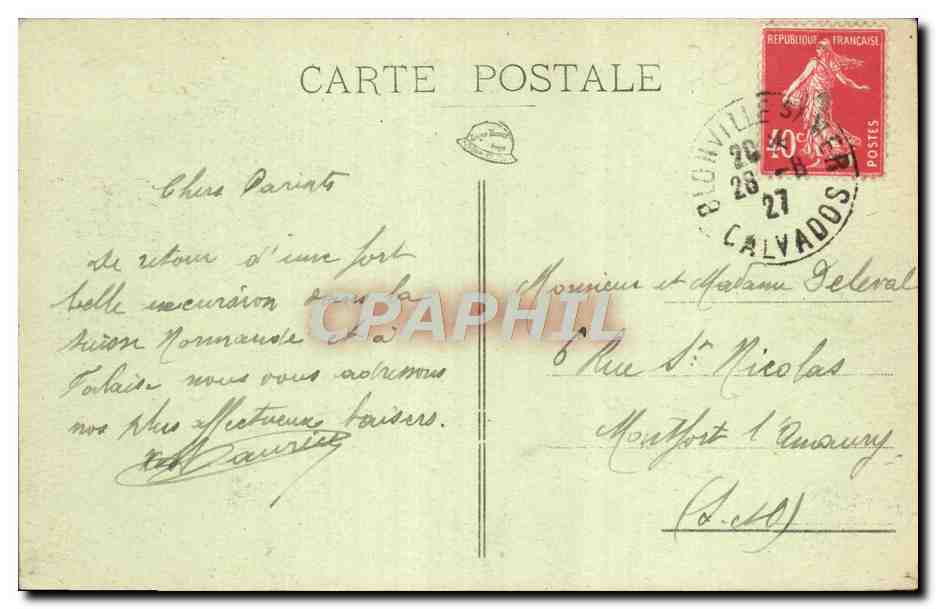 CARTE POSTALE
REPUBLIQUE FRANÇAISE
40 c
POSTES
BLONVILLE S/ MER
20
26 - 8
27
CALVADOS
Chers Parents
De retour d'une fort
belle excursion dans la
suisse Normande et à
Falaise nous vous adressons
nos plus affectueux baisers.
Maurice
Monsieur et Madame Deleval
6 Rue St Nicolas
Montfort l'Amaury
(S.-&O)
CPAPHIL